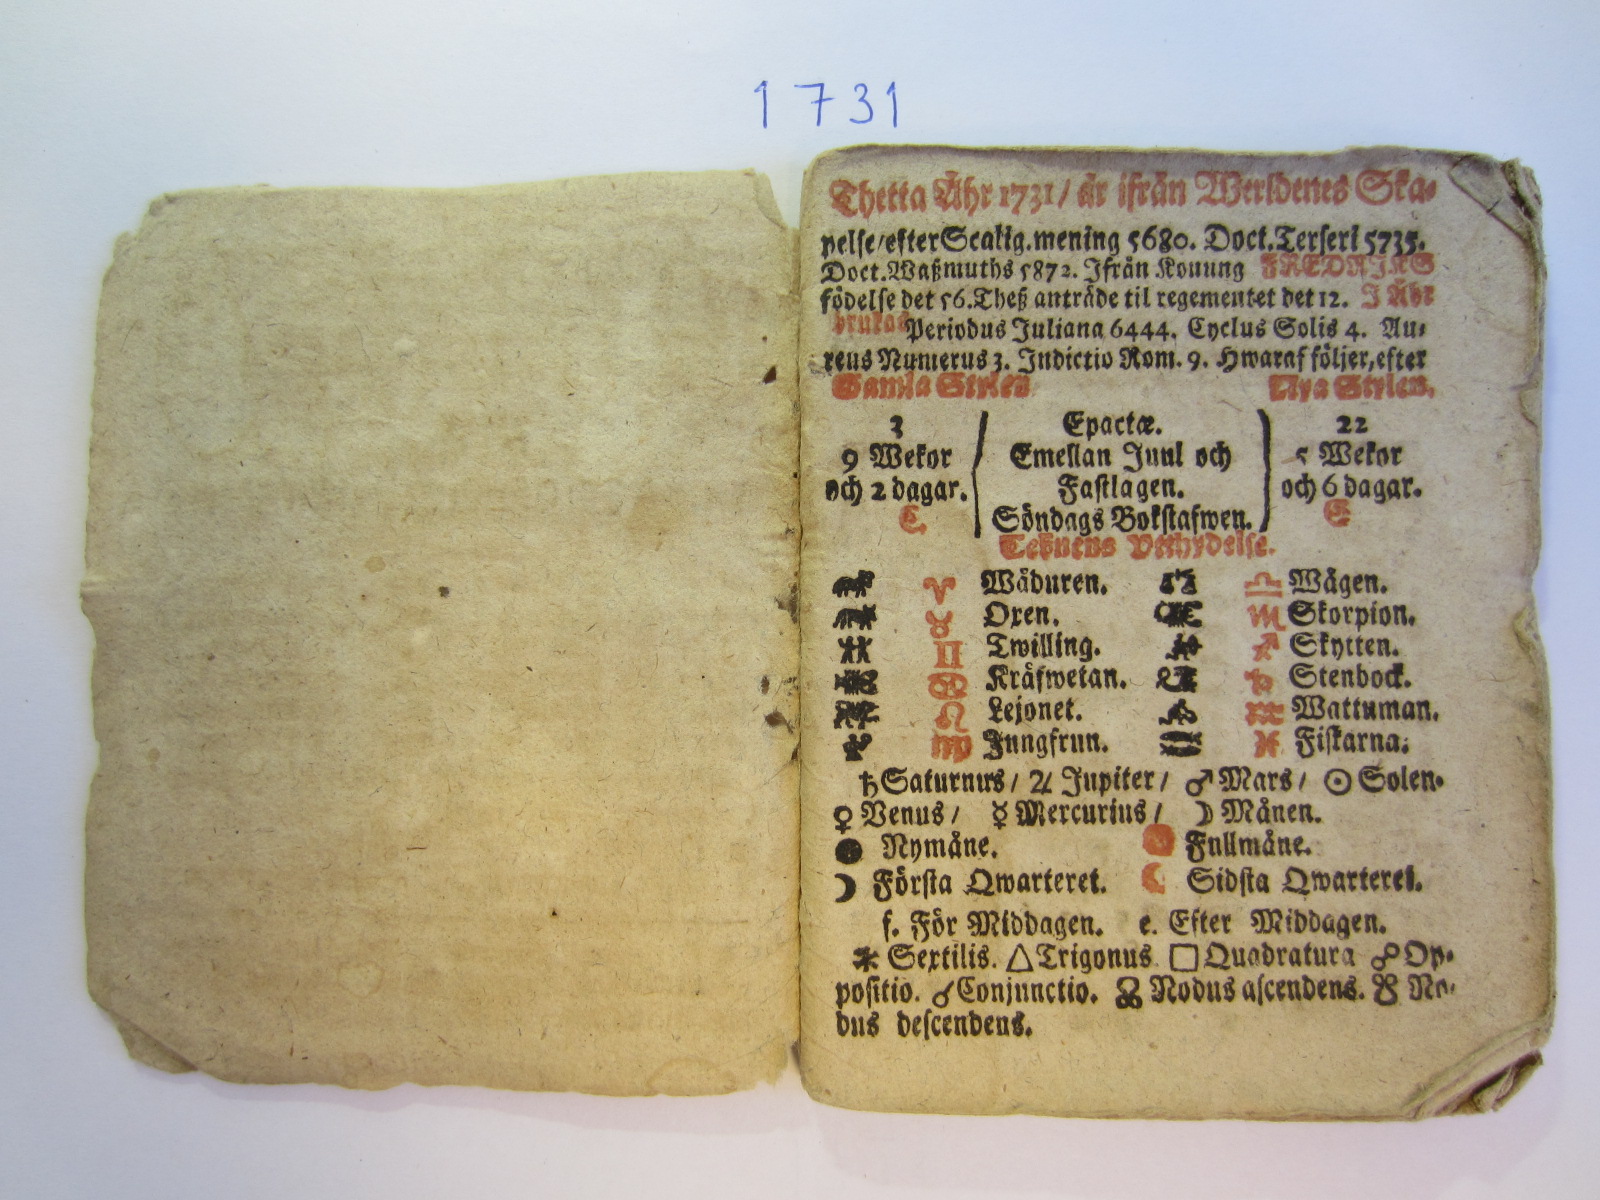 1731
Thetta Åhr 1731/ är ifrån Werldenes Ska-
pelse/efter Scalig. mening 5680. Doct. Terserl 5735.
Doct. Waßmuths 5872. Ifrån Konung FREDRIKS
födelse det 56. Theß anträde til regementet det 12. I Åhr
brukas Periodus Juliana 6444. Cyclus Solis 4. Au-
reus Numerus 3. Indictio Rom. 9. Hwaraf följer, efter
Gamla Stylen Nya Stylen.
3 Epactæ. 22
9 Wekor Emellan Juul och 5 Wekor
och 2 dagar. Fastlagen. och 6 dagar.
C. Söndags Bokstafwen. E
Teknens Vtthydelse.
♈ Wäduren. ♎ Wågen.
♉ Oxen. ♏ Skorpion.
♊ Twilling. ♐ Skytten.
♋ Kräfwetan. ♑ Stenbock.
♌ Lejonet. ♒ Wattuman.
♍ Jungfrun. ♓ Fiskarna.
♄ Saturnus/ ♃ Jupiter/ ♂ Mars/ ☉ Solen.
♀ Venus/ ☿ Mercurius/ ☽ Månen.
● Nymåne. ● Fullmåne.
☽ Första Qwarteret. ☾ Sidsta Qwarteret.
f. För Middagen. e. Efter Middagen.
⚹ Sextilis. △ Trigonus. □ Quadratura ☍ Op-
positio. ☌ Conjunctio. ☊ Nodus ascendens. ☋ No-
dus descendens.